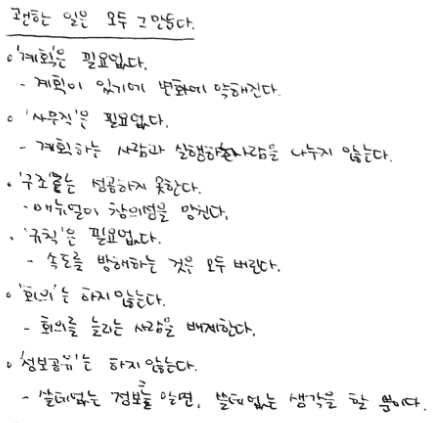 괜한 일은 모두 그만둔다.
• '계획'은 필요없다.
- 계획이 있기에 변화에 약해진다.
• '사무직'은 필요없다.
- 계획하는 사람과 실행하는사람을 나누지 않는다.
• '구조'로는 성공하지 못한다.
- 매뉴얼이 창의성을 망친다.
• '규칙'은 필요없다.
- 속도를 방해하는 것은 모두 버린다.
• '회의'는 하지 않는다.
- 회의를 늘리는 사람을 배제한다.
• '정보공유'는 하지 않는다.
- 쓸데없는 정보를 알면, 쓸데없는 생각을 할 뿐이다.